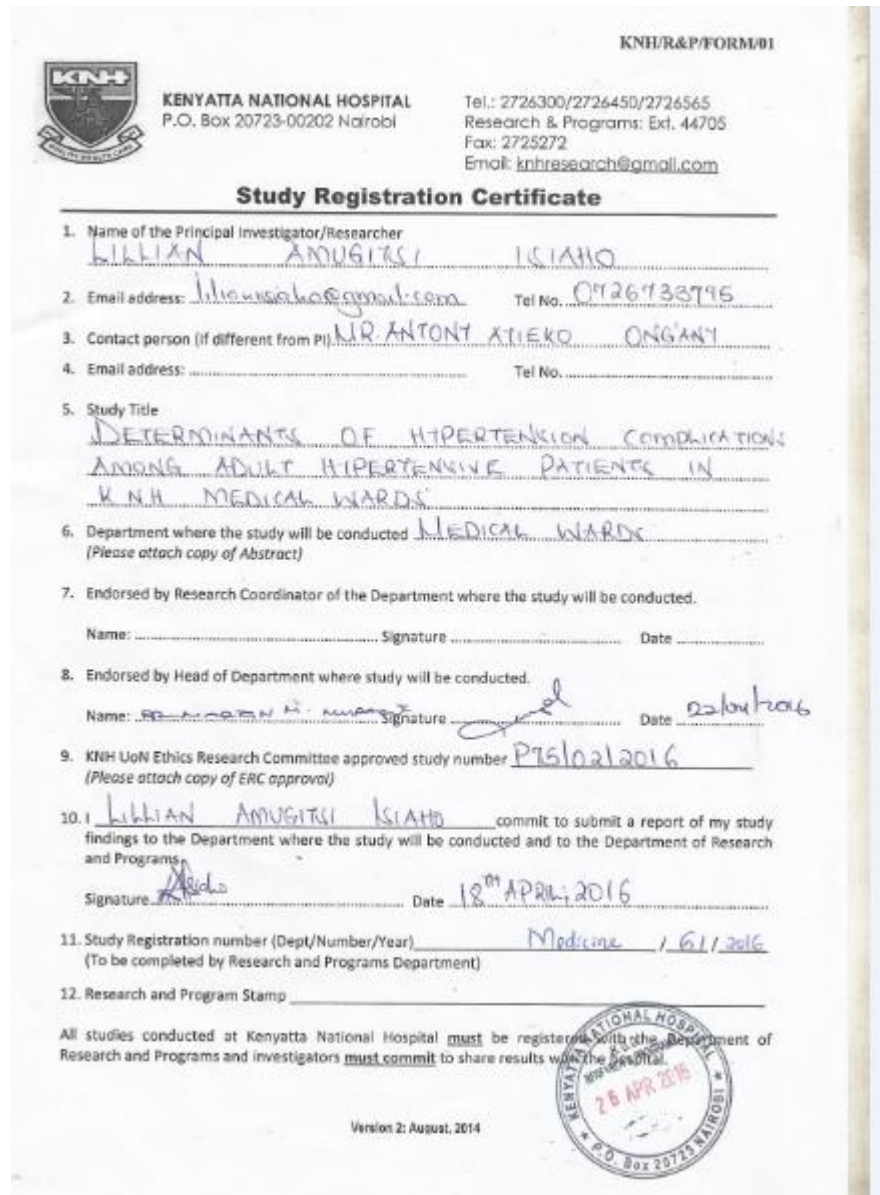 KNH/R&P/FORM/01
KNH
KENYATTA NATIONAL HOSPITAL
P.O. Box 20723-00202 Nairobi
Tel.: 2726300/2726450/2726565
Research & Programs: Ext. 44705
Fax: 2725272
Email: knhresearch@gmail.com
Study Registration Certificate
1. Name of the Principal Investigator/Researcher
LILLIAN AMUGITSI ISIAHO
2. Email address: lilianisiaho@gmail.com Tel No. 0726733795
3. Contact person (if different from PI) MR. ANTONY ATIEKO ONG'ANY
4. Email address: Tel No.
5. Study Title
DETERMINANTS OF HYPERTENSION COMPLICATIONS
AMONG ADULT HIPERTENSIVE PATIENTS IN
KNH MEDICAL WARDS
6. Department where the study will be conducted MEDICAL WARDS
(Please attach copy of Abstract)
7. Endorsed by Research Coordinator of the Department where the study will be conducted.
Name: Signature Date
8. Endorsed by Head of Department where study will be conducted.
Name: Signature Date 22/04/2016
9. KNH UoN Ethics Research Committee approved study number P75/02/2016
(Please attach copy of ERC approval)
10. I LILLIAN AMUGITSI ISIAHO commit to submit a report of my study
findings to the Department where the study will be conducted and to the Department of Research
and Programs.
Signature Date 18TH APRIL, 2016
11. Study Registration number (Dept/Number/Year) Medicine / 61 / 2016
(To be completed by Research and Programs Department)
12. Research and Program Stamp
All studies conducted at Kenyatta National Hospital must be registered with the Department of
Research and Programs and investigators must commit to share results with the hospital.
KENYATTA NATIONAL HOSPITAL
APR 2016
P.O. Box 20723 NAIROBI
Version 2: August, 2014